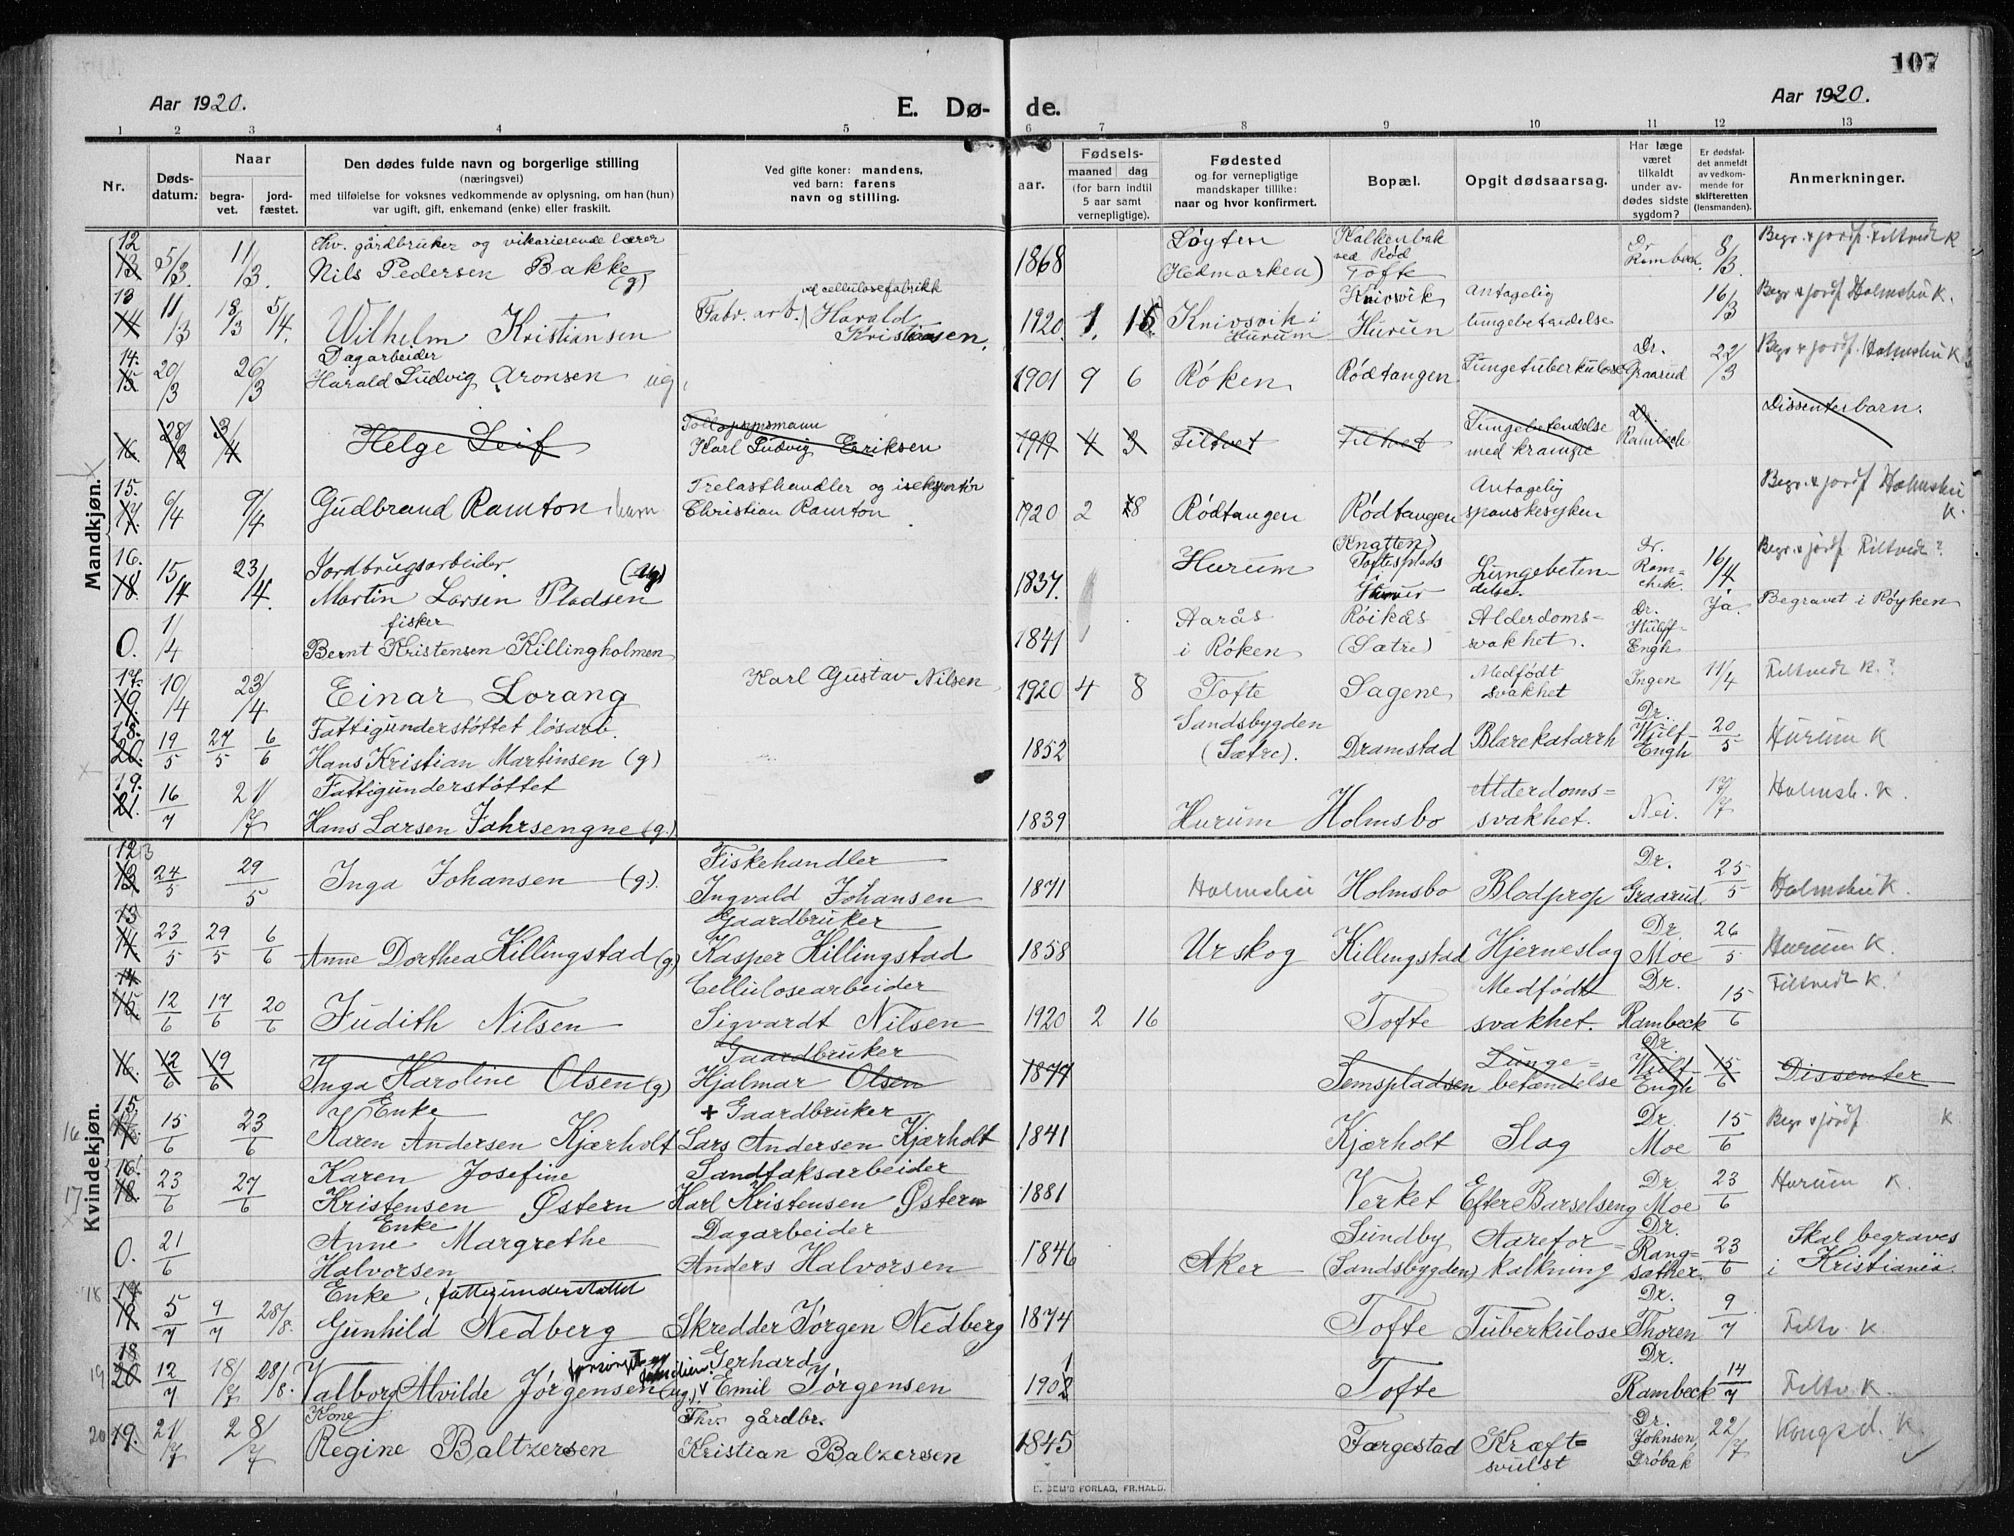 107
Aar 1920.
E. Dø-
de.
Aar 1920.
1 2 3 4 5 6 7 8 9 10 11 12 13
Nr.
Døds-
datum:
Naar
begra-
vet.
jord-
fæstet.
Den dødes fulde navn og borgerlige stilling
(næringsvei)
med tilføielse for voksnes vedkommende av oplysning, om han (hun)
var ugift, gift, enkemand (enke) eller fraskilt.
Ved gifte koner: mandens,
ved barn: farens
navn og stilling.
aar.
Fødsels-
maaned dag
(for barn indtil
5 aar samt
vernepligtige).
Fødested
og for vernepligtige
mandskaper tillike:
naar og hvor konfirmert.
Bopæl.
Opgit dødsaarsag.
Har læge
været
tilkaldt
under av-
dødes sidste
sygdom?
Er dødsfal-
det anmeldt
av vedkom-
mende for
skifteretten
(lensmanden).
Anmerkninger.
Mandkjøn.
12 13 5/3 11/3 Fhv. gårdbruker og vikarierende lærer
Nils Pedersen Bakke (g) 1868 Løyten (Hedmarken) Kalkenbak ved Rød Tofte Dr Rambeck. 8/3. Begr. & jordf. Filtvedt K
13 14 11/3 18/3 5/4. Wilhelm Kristiansen Fabr. arb. ved cellulosefabrikk Harald Kristiansen. 1920 1. 15 Knivsvik i Hurum Knivsvik Hurum Antagelig lungebetændelse 16/3 Begr & jordf Holmsbu K.
14. 15 20/3 26/3 Dagarbeider
Harald Ludvig Aronsen ug. 1901 9 6 Røken Rødtangen Lungetuberkulose Dr. Graarud 22/3 Begr & jordf. Holmsbu K
16. 28/3 3/4 Helge Leif Tollopsynsmann Karl Ludvig Eriksen 1919 4 3 Filtvet Filtvet Lungebetendelse med krampe Dr Rambech Dissenterbarn.
15. 17. 6/4 9/4 Gudbrand Ramton, barn Trelasthandler og iseksportør Christian Ramton 1920 2 18 Rødtangen Rødtangen Antagelig spanskesyken Begr. & jordf Holmsbu K.
16. 18. 15/4 23/4. Jordbrugsarbeider.
Martin Larsen Pladsen (ug) 1837. Hurum (Knatten) Toftesplads i Lungebeten delse. Dr. Ram- bek. 16/4 Begr. & jordf. Filtvedt?
0. 1/4 fisker
Bernt Kristensen Killingholmen 1841 Aarås i Røken Røikås (Sætre) Alderdoms= svakhet. Dr. Wulff- Engh Ja. Begravet i Røyken
17. 19. 10/4 23/4 Einar Lorang Karl Gustav Nilsen 1920 4 8 Tofte Sagene Medfødt svakhet Ingen 11/4 Filtvedt K.?
18. 20. 19/5 27/5 6/6 Fattigunderstøttet løsarb.
Hans Kristian Martinsen (g) 1852 Sandsbygden (Sætre). Dramstad Blærekatarrh Dr. Wulf- Engh 20/5 Hurum K
19. 21. 16/7 21/7 Fattigunderstøttet
Hans Larsen Jahrsengne (g.) 1839 Hurum Holmsbo Alderdoms= svakhet. Nei. 17/7 Holmsb. K.
Kvindekjøn.
12 13 24/5 29/5 Inga Johansen (g). Fiskehandler Ingvald Johansen 1871 Holmsbu Holmsbo Blodprop Dr. Graarud 25/5 Holmsbu K.
13 14. 23/5 29/5 6/6 Anne Dorthea Killingstad (g) Gaardbruker Kasper Killingstad 1858 Urskog Killingstad Hjerneslag Dr Moe 26/5 Hurum K.
14 15. 12/6 17/6 20/6 Judith Nilsen Cellulosearbeider Sigvardt Nilsen 1920 2 16 Tofte Medfødt svakhet. Dr. Rambeck 15/6 Filtvedt K.
16. 12/6 19/6 Inga Karoline Olsen (g) Gaardbruker Hjalmar Olsen 1877 Semspladsen Lunge= betændelse Dr. Wulf- Engh 15/6 Dissenter
16 15. 17. 15/6 23/6 Enke
Karen Andersen Kjærholt + Gaardbruker Lars Andersen Kjærholt 1841 Kjærholt Slag Dr. Moe 15/6 Begr & jordf K
17 16. 18. 23/6 27/6 Karen Josefine
Kristensen Østern Sandtaksarbeider Karl Kristensen Østern 1881 Verket Efter Barselseng Dr. Moe 23/6 Hurum K.
0. 21/6 Enke
Anne Margrethe
Halvorsen Dagarbeider Anders Halvorsen 1846 Aker Sundby (Sandsbygden) Aarefor= kalkning Dr. Rang- sæther. 23/6 Skal begraves i Kristiania.
18 17 19. 5/7 9/7 28/8. Enke, fattigunderstøttet
Gunhild Nedberg Skredder Jørgen Nedberg 1874 Tofte Tuberkulose Dr. Thoren 9/7 Filtv. K.
19 18 20 12/7 18/7 28/8. Valborg Alvilde Jørgensen (ug) forsørget av familien. Gerhard Emil Jørgensen 1902 1 Tofte Dr. Rambeck 14/7 Filtv K.
20 19. 21/7 28/7 Kone
Regine Baltzersen Fhv. gårdbr. Kristian Balzersen 1845 Færgestad Kræft= svulst Dr. Johnsen, Drøbak 22/7 Kongsd. K.
E. SEM'S FORLAG, FR.HALD.